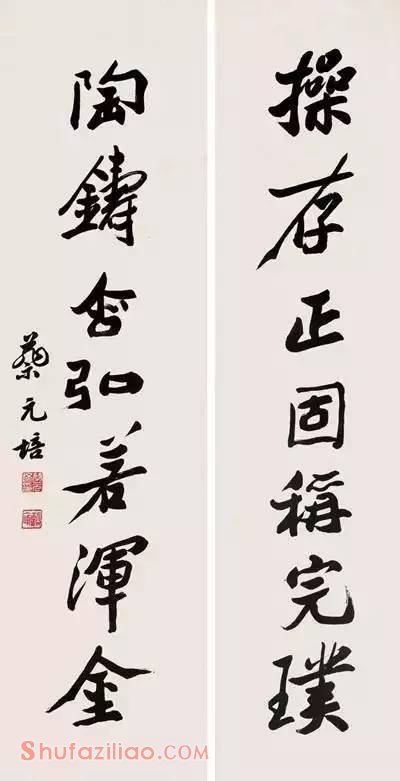 操存正固稱完璞
陶鑄含弘若渾金
蔡元培
Shufaziliao.COM